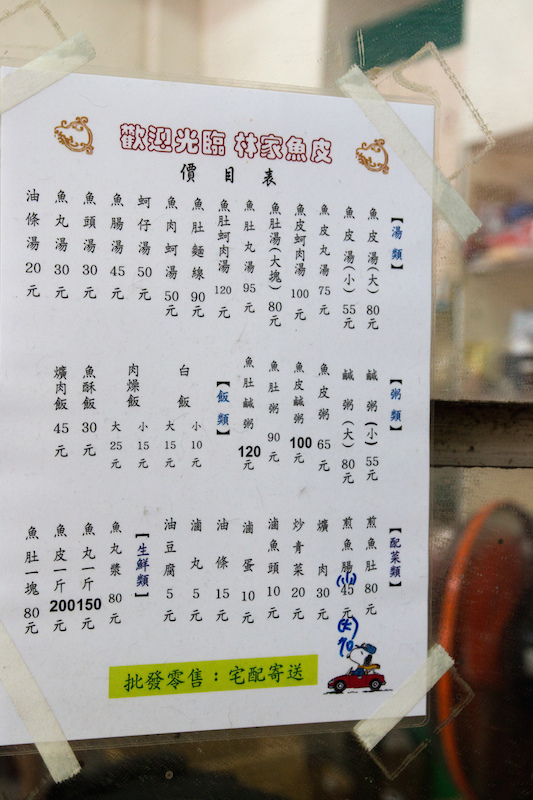 歡迎光臨 林家魚皮
價目表
【湯類】
魚皮湯(大)80元
魚皮湯(小)55元
魚皮丸湯 75元
魚皮蚵肉湯 100元
魚肚湯(大塊)80元
魚肚丸湯 95元
魚肚蚵肉湯 120元
魚肚麵線 90元
魚肉蚵湯 50元
蚵仔湯 50元
魚腸湯 45元
魚頭湯 30元
魚丸湯 30元
油條湯 20元
【粥類】
鹹粥(小)55元
鹹粥(大)80元
魚皮粥 65元
魚皮鹹粥 100元
魚肚粥 90元
魚肚鹹粥 120元
【飯類】
白飯
小10元
大15元
肉燥飯
小15元
大25元
魚酥飯 30元
爌肉飯 45元
【配菜類】
煎魚肚 80元
煎魚腸 45元
(小)
(大)
70
爌肉 30元
炒青菜 20元
滷魚頭 10元
滷蛋 10元
油條 15元
滷丸 5元
油豆腐 5元
【生鮮類】
魚丸漿 80元
魚丸一斤 150元
魚皮一斤 200元
魚肚一塊 80元
批發零售：宅配寄送